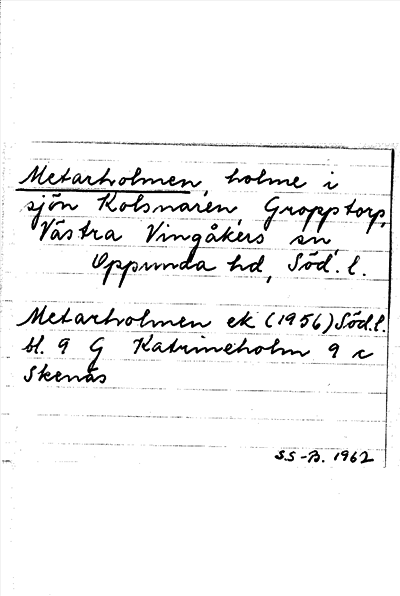 Metarholmen, holme i
sjön Kolsnaren, Gropptorp,
Västra Vingåkers sn,
Oppunda hd, Söd. l.
Metarholmen ek (1956) Söd.l.
bl. 9 G Katrineholm 9 c
Skenäs
S.S-B. 1962